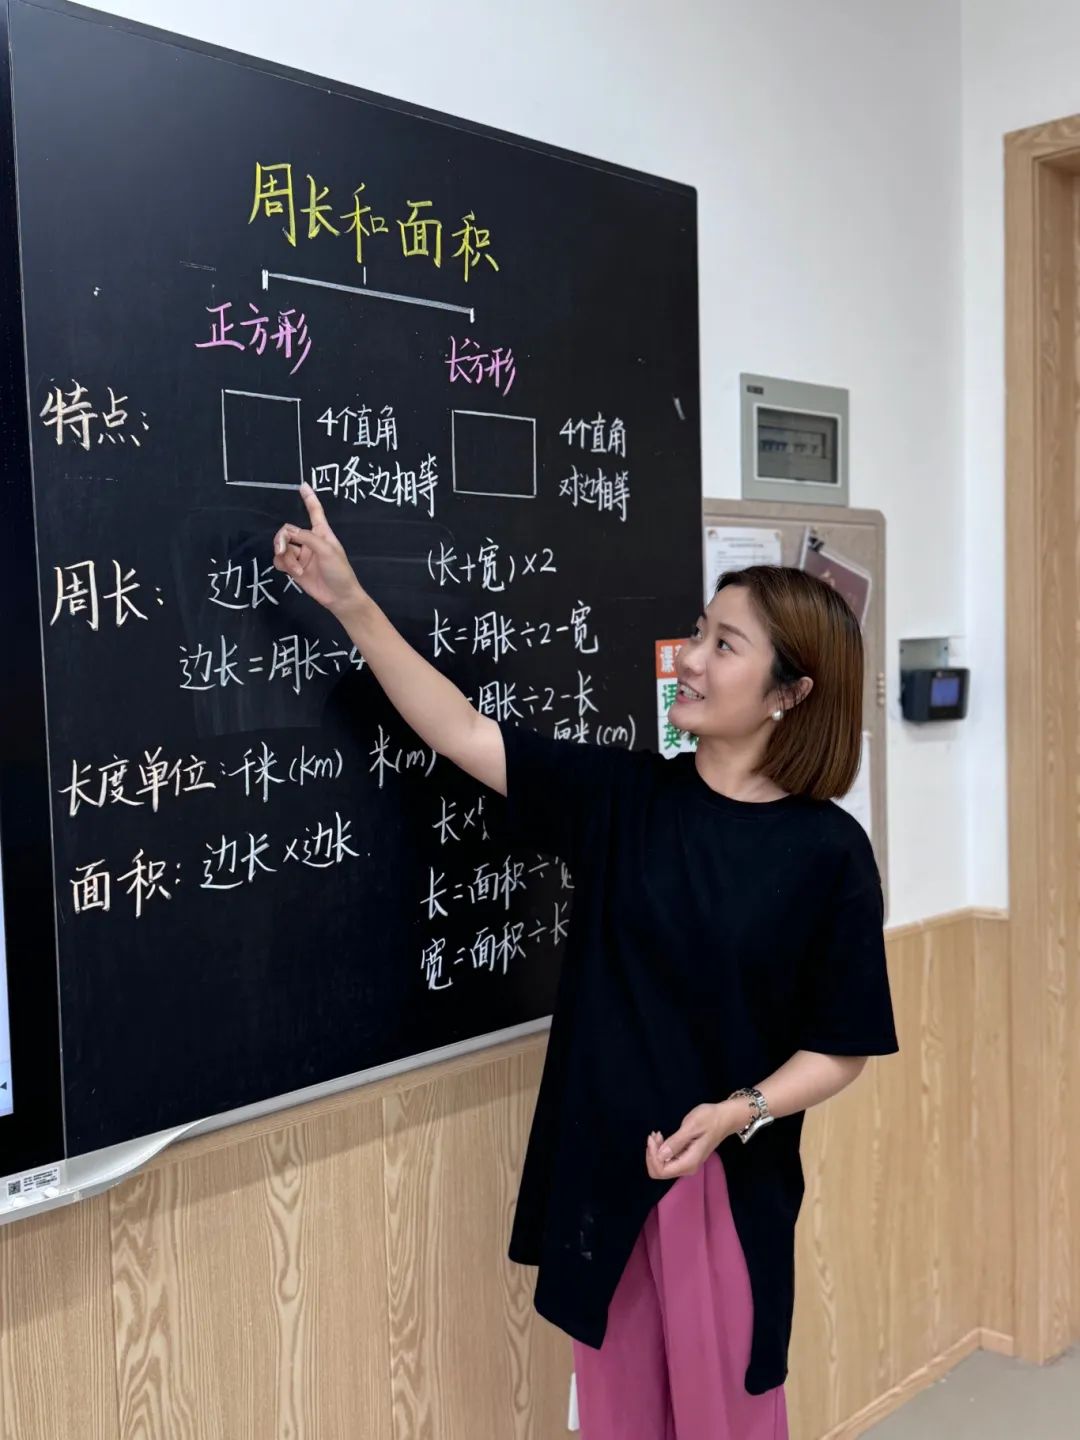 周长和面积
正方形
长方形
特点：
4个直角
四条边相等
4个直角
对边相等
周长：
边长×
(长+宽)×2
边长=周长÷4
长=周长÷2-宽
=周长÷2-长
长度单位：千米(km) 米(m)
厘米(cm)
面积：边长×边长
长×
长=面积÷宽
宽=面积÷长
课
语
英